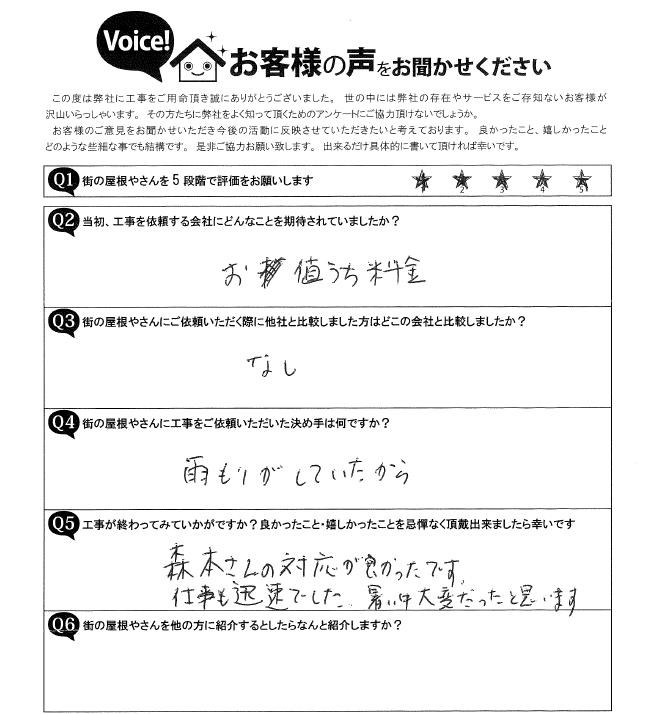 Voice!
お客様の声をお聞かせください
この度は弊社に工事をご用命頂き誠にありがとうございました。 世の中には弊社の存在やサービスをご存知ないお客様が
沢山いらっしゃいます。 その方たちに弊社をよく知って頂くためのアンケートにご協力頂けないでしょうか。
お客様のご意見をお聞かせいただき今後の活動に反映させていただきたいと考えております。 良かったこと、嬉しかったこと
どのような些細な事でも結構です。 是非ご協力お願い致します。 出来るだけ具体的に書いて頂ければ幸いです。
Q1 街の屋根やさんを5段階で評価をお願いします
1 2 3 4 5
Q2 当初、工事を依頼する会社にどんなことを期待されていましたか？
お 値うち料金
Q3 街の屋根やさんにご依頼いただく際に他社と比較しました方はどこの会社と比較しましたか？
なし
Q4 街の屋根やさんに工事をご依頼いただいた決め手は何ですか？
雨もりがしていたから
Q5 工事が終わってみていかがですか？良かったこと・嬉しかったことを忌憚なく頂戴出来ましたら幸いです
森本さんの対応が良かったです。
仕事も迅速でした。暑い中大変だったと思います
Q6 街の屋根やさんを他の方に紹介するとしたらなんと紹介しますか？